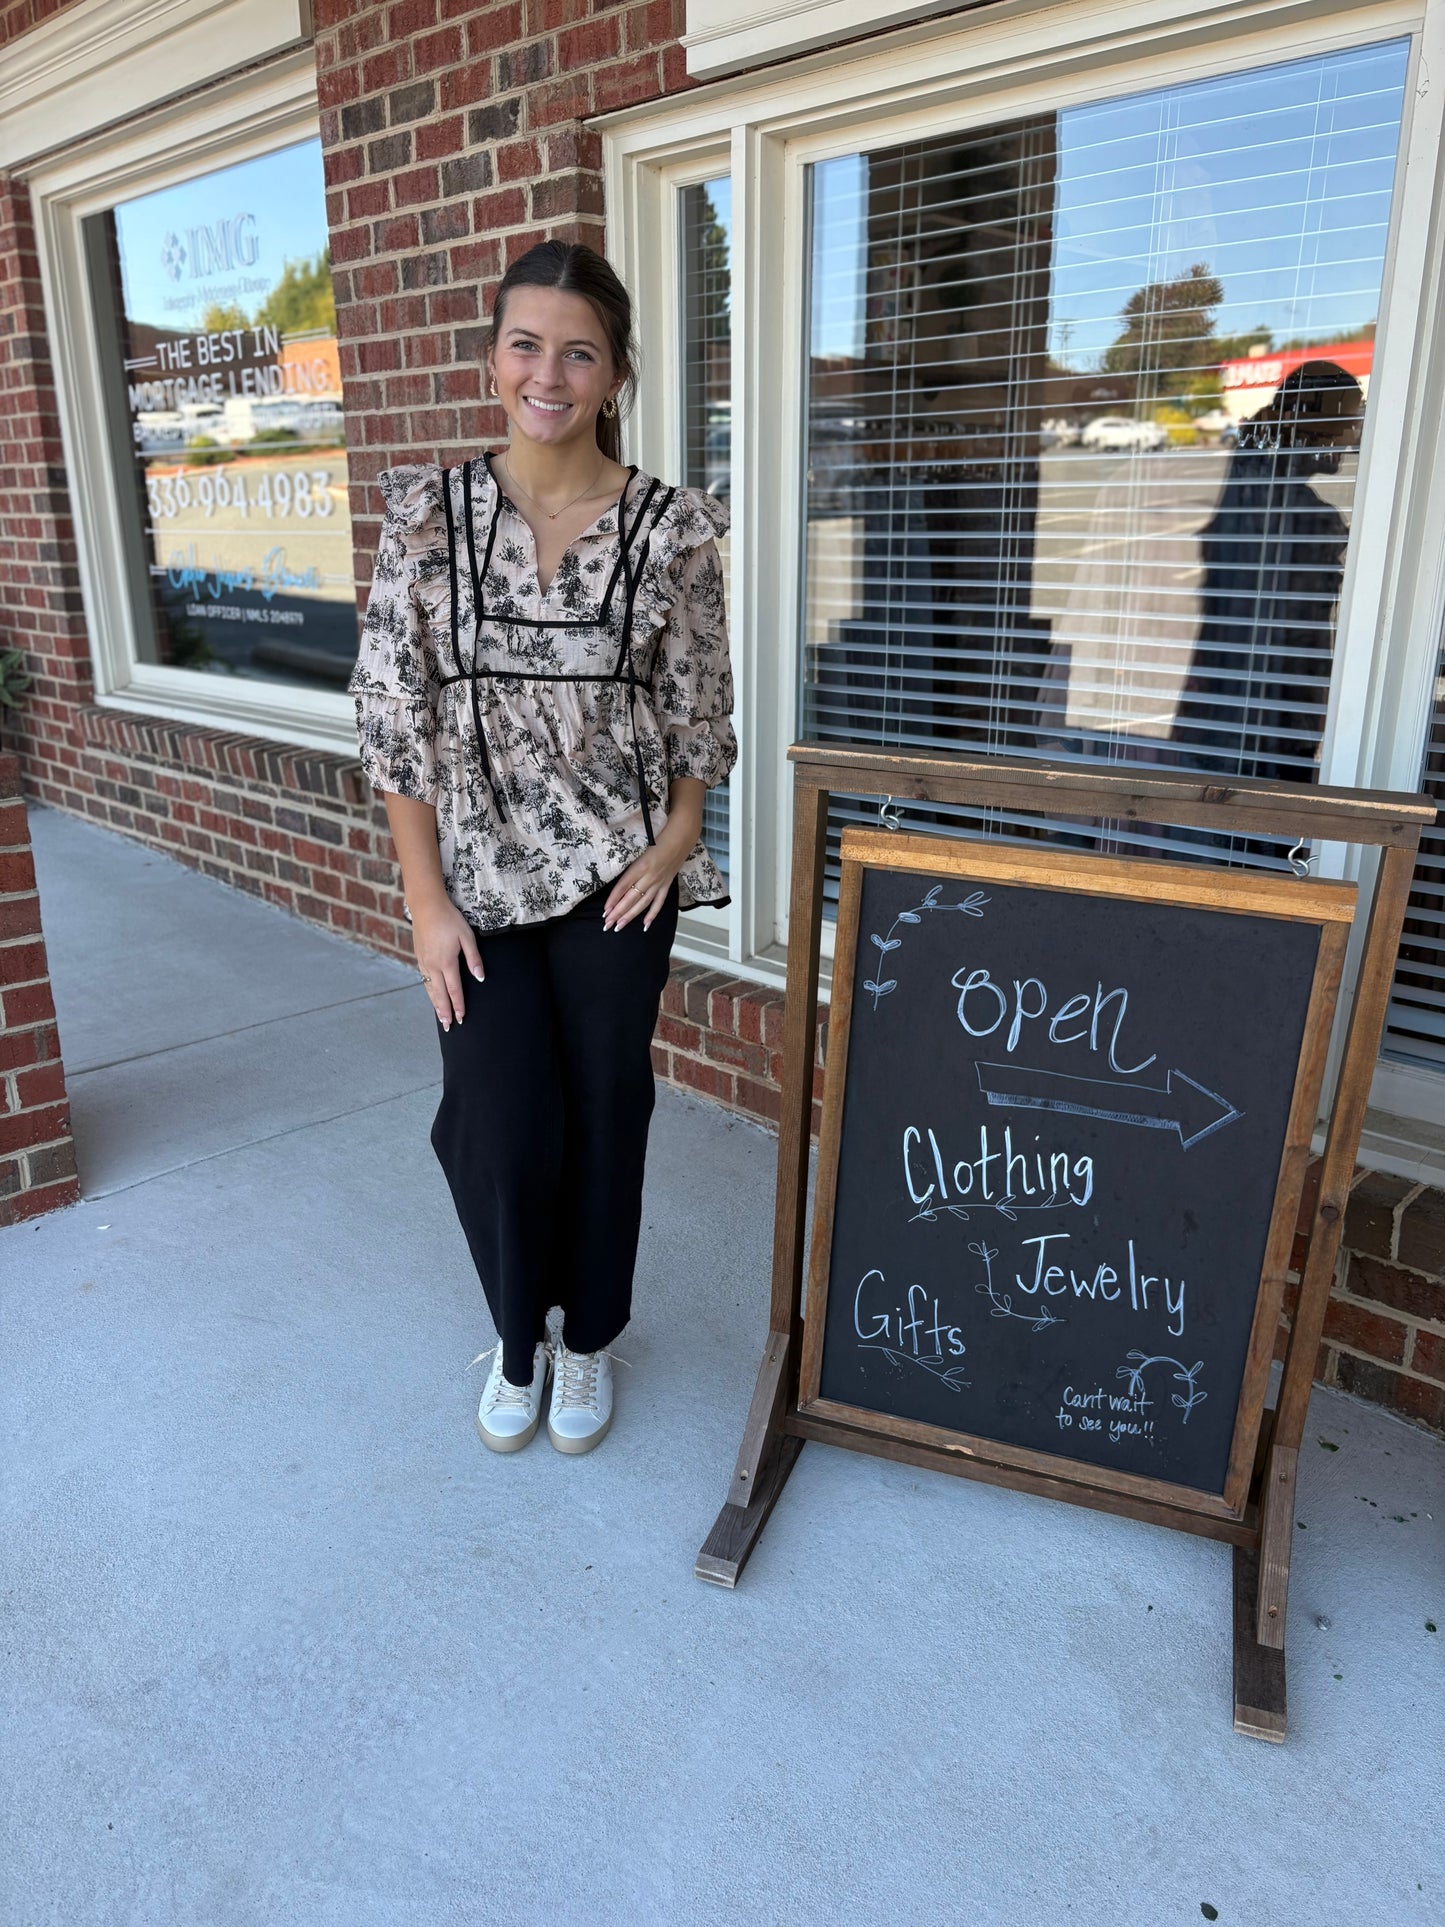 IMG
THE BEST IN
MORTGAGE LENDING.
336.904.4983
LOAN OFFICER | NMLS 2048979
Open
Clothing
Jewelry
Gifts
Can't wait
to see you!!